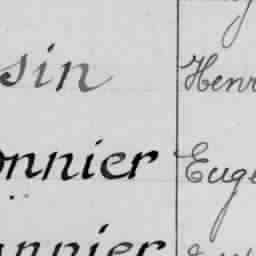 sin Henr
onnier Euge
nnier